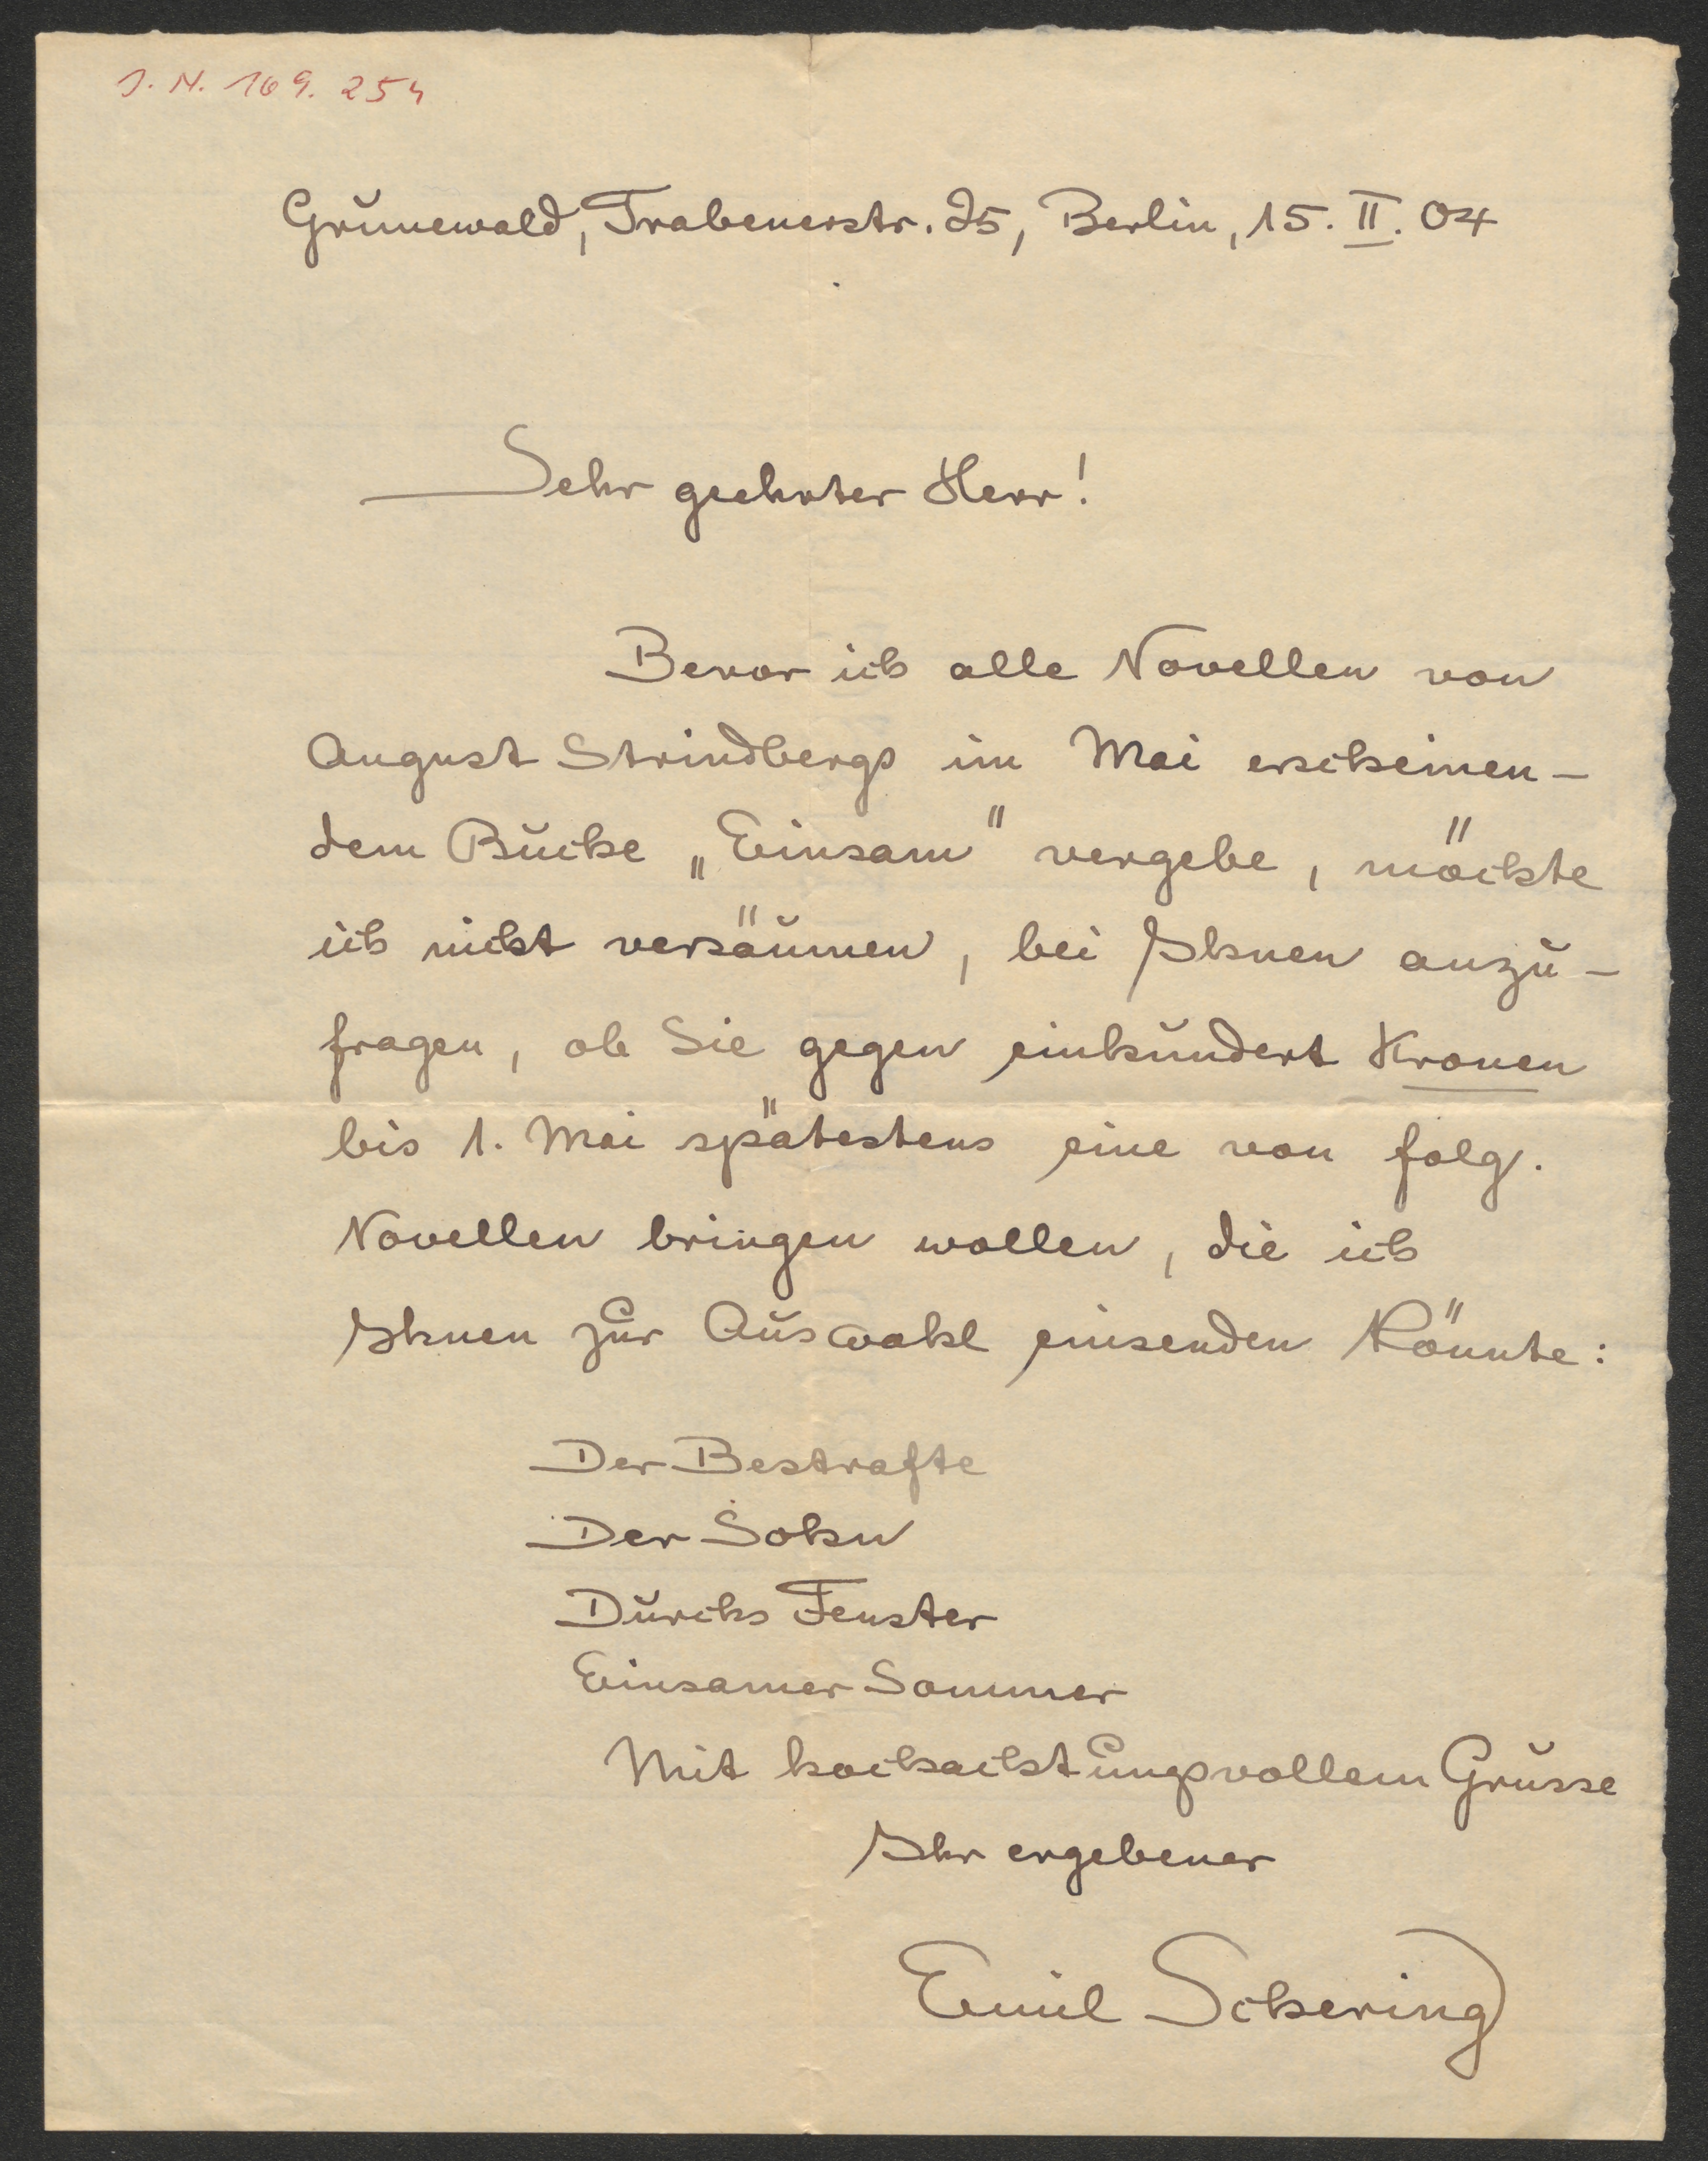 J. N. 169. 254
Grunewald, Trabenerstr. 25, Berlin, 15. II. 04
Sehr geehrter Herr!
Bevor ich alle Novellen von
August Strindbergs im Mai erscheinen-
dem Buche „Einsam" vergebe, möchte
ich nicht versäumen, bei Ihnen anzu-
fragen, ob Sie gegen einhundert Kronen
bis 1. Mai spätestens eine von folg.
Novellen bringen wollen, die ich
Ihnen zur Auswahl einsenden könnte:
Der Bestrafte
Der Sohn
Durchs Fenster
Einsamer Sommer
Mit hochachtungsvollem Grusse
Ihr ergebener
Emil Schering